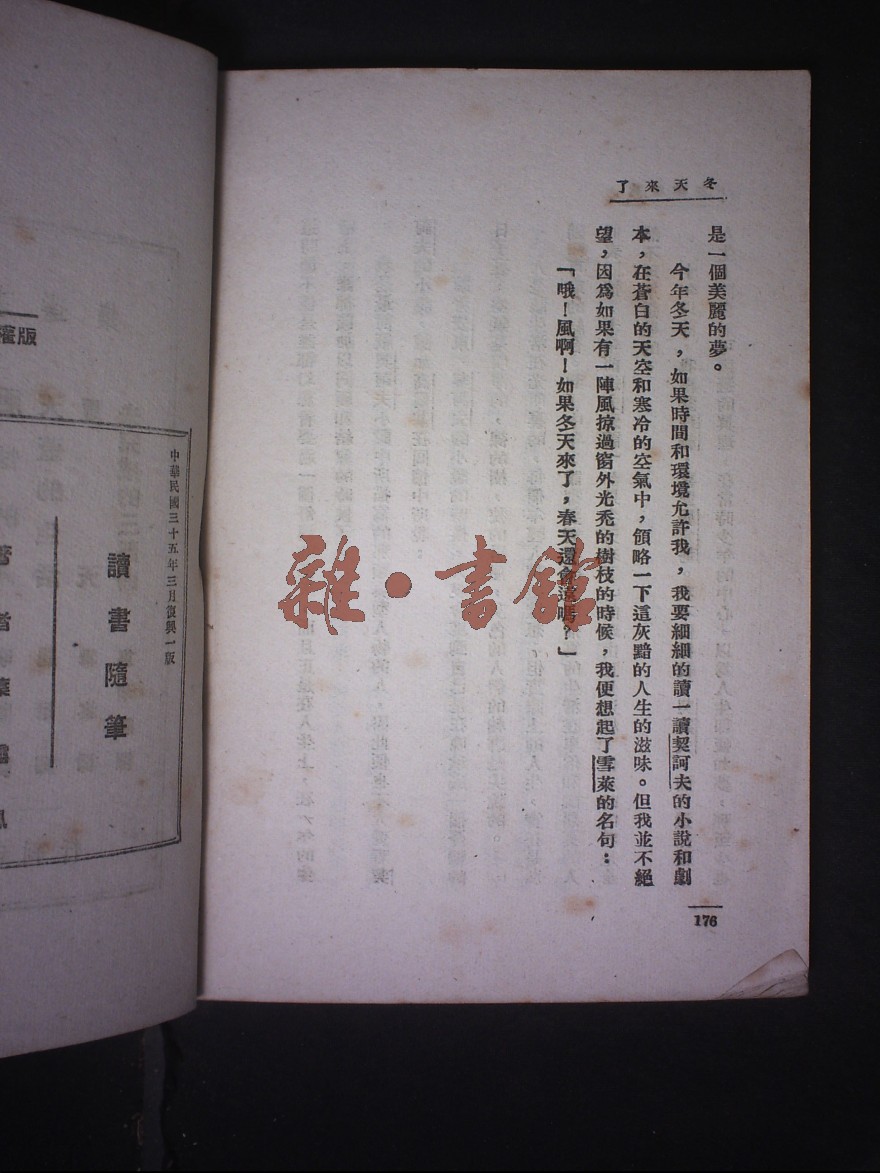 冬天來了
是一個美麗的夢。
今年冬天，如果時間和環境允許我，我要細細的讀一讀契訶夫的小說和劇
本，在蒼白的天空和寒冷的空氣中，領略一下這灰黯的人生的滋味。但我並不絕
望，因爲如果有一陣風掠過窗外光禿的樹枝的時候，我便想起了雪萊的名句：
「哦！風啊！如果冬天來了，春天還會遠嗎？」
176
雜·書館
版
讀書隨筆
中華民國三十五年三月復興一版